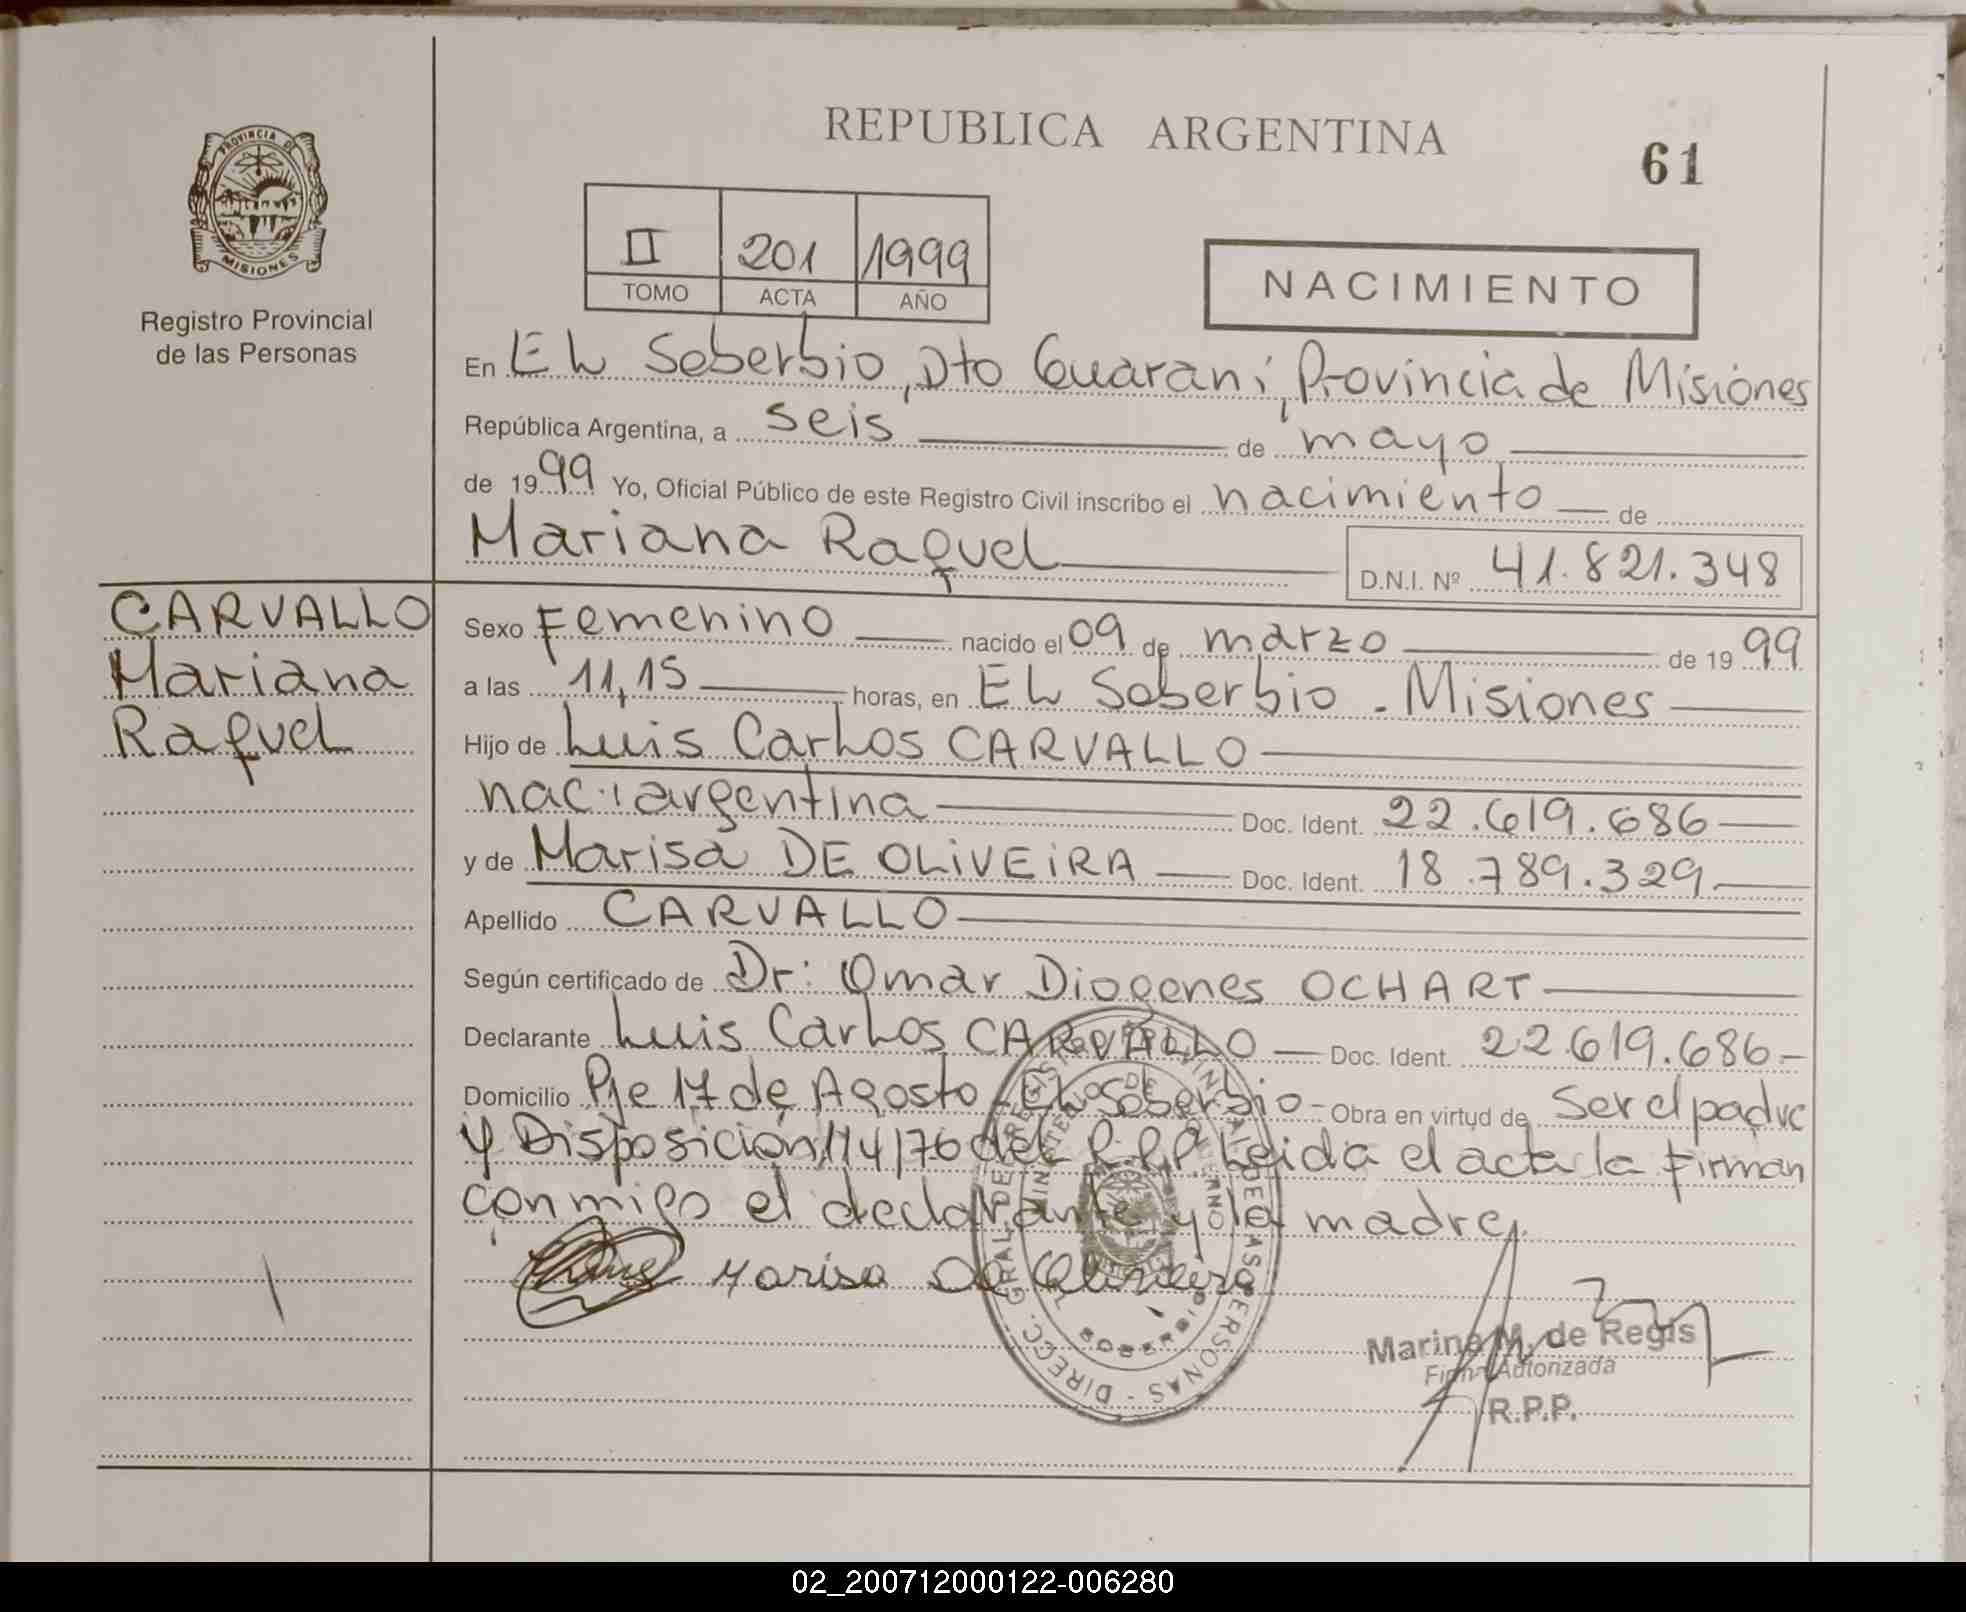 REPUBLICA ARGENTINA
61
PROVINCIA DE MISIONES
Registro Provincial
de las Personas
II 201 1999
TOMO ACTA AÑO
NACIMIENTO
En EL Soberbio, Dto Guarani, Provincia de Misiones
República Argentina, a seis de mayo
de 1999 Yo, Oficial Público de este Registro Civil inscribo el nacimiento de
Mariana Raquel D.N.I. Nº 41.821.348
CARVALLO
Mariana
Raquel
Sexo Femenino nacido el 09 de marzo de 1999
a las 11,15 horas, en EL Soberbio - Misiones
Hijo de Luis Carlos CARVALLO
nac: argentina Doc. Ident. 22.619.686
y de Marisa DE OLIVEIRA Doc. Ident. 18.789.329
Apellido CARVALLO
Según certificado de Dr: Omar Diogenes OCHART
Declarante Luis Carlos CARVALLO Doc. Ident. 22.619.686-
Domicilio Pje 17 de Agosto - EL Soberbio - Obra en virtud de Ser el padre
y Disposición 114/76 del R.P.P Leida el acta la firman
conmigo el declarante y la madre.
Marisa De Oliveira
DIRECC. GRAL. DE REGISTRO PROVINCIAL DE LAS PERSONAS
MINISTERIO DE GOBIERNO
SOBERBIO
Marina M. de Regis
Firma Autorizada
R.P.P.
02_200712000122-006280